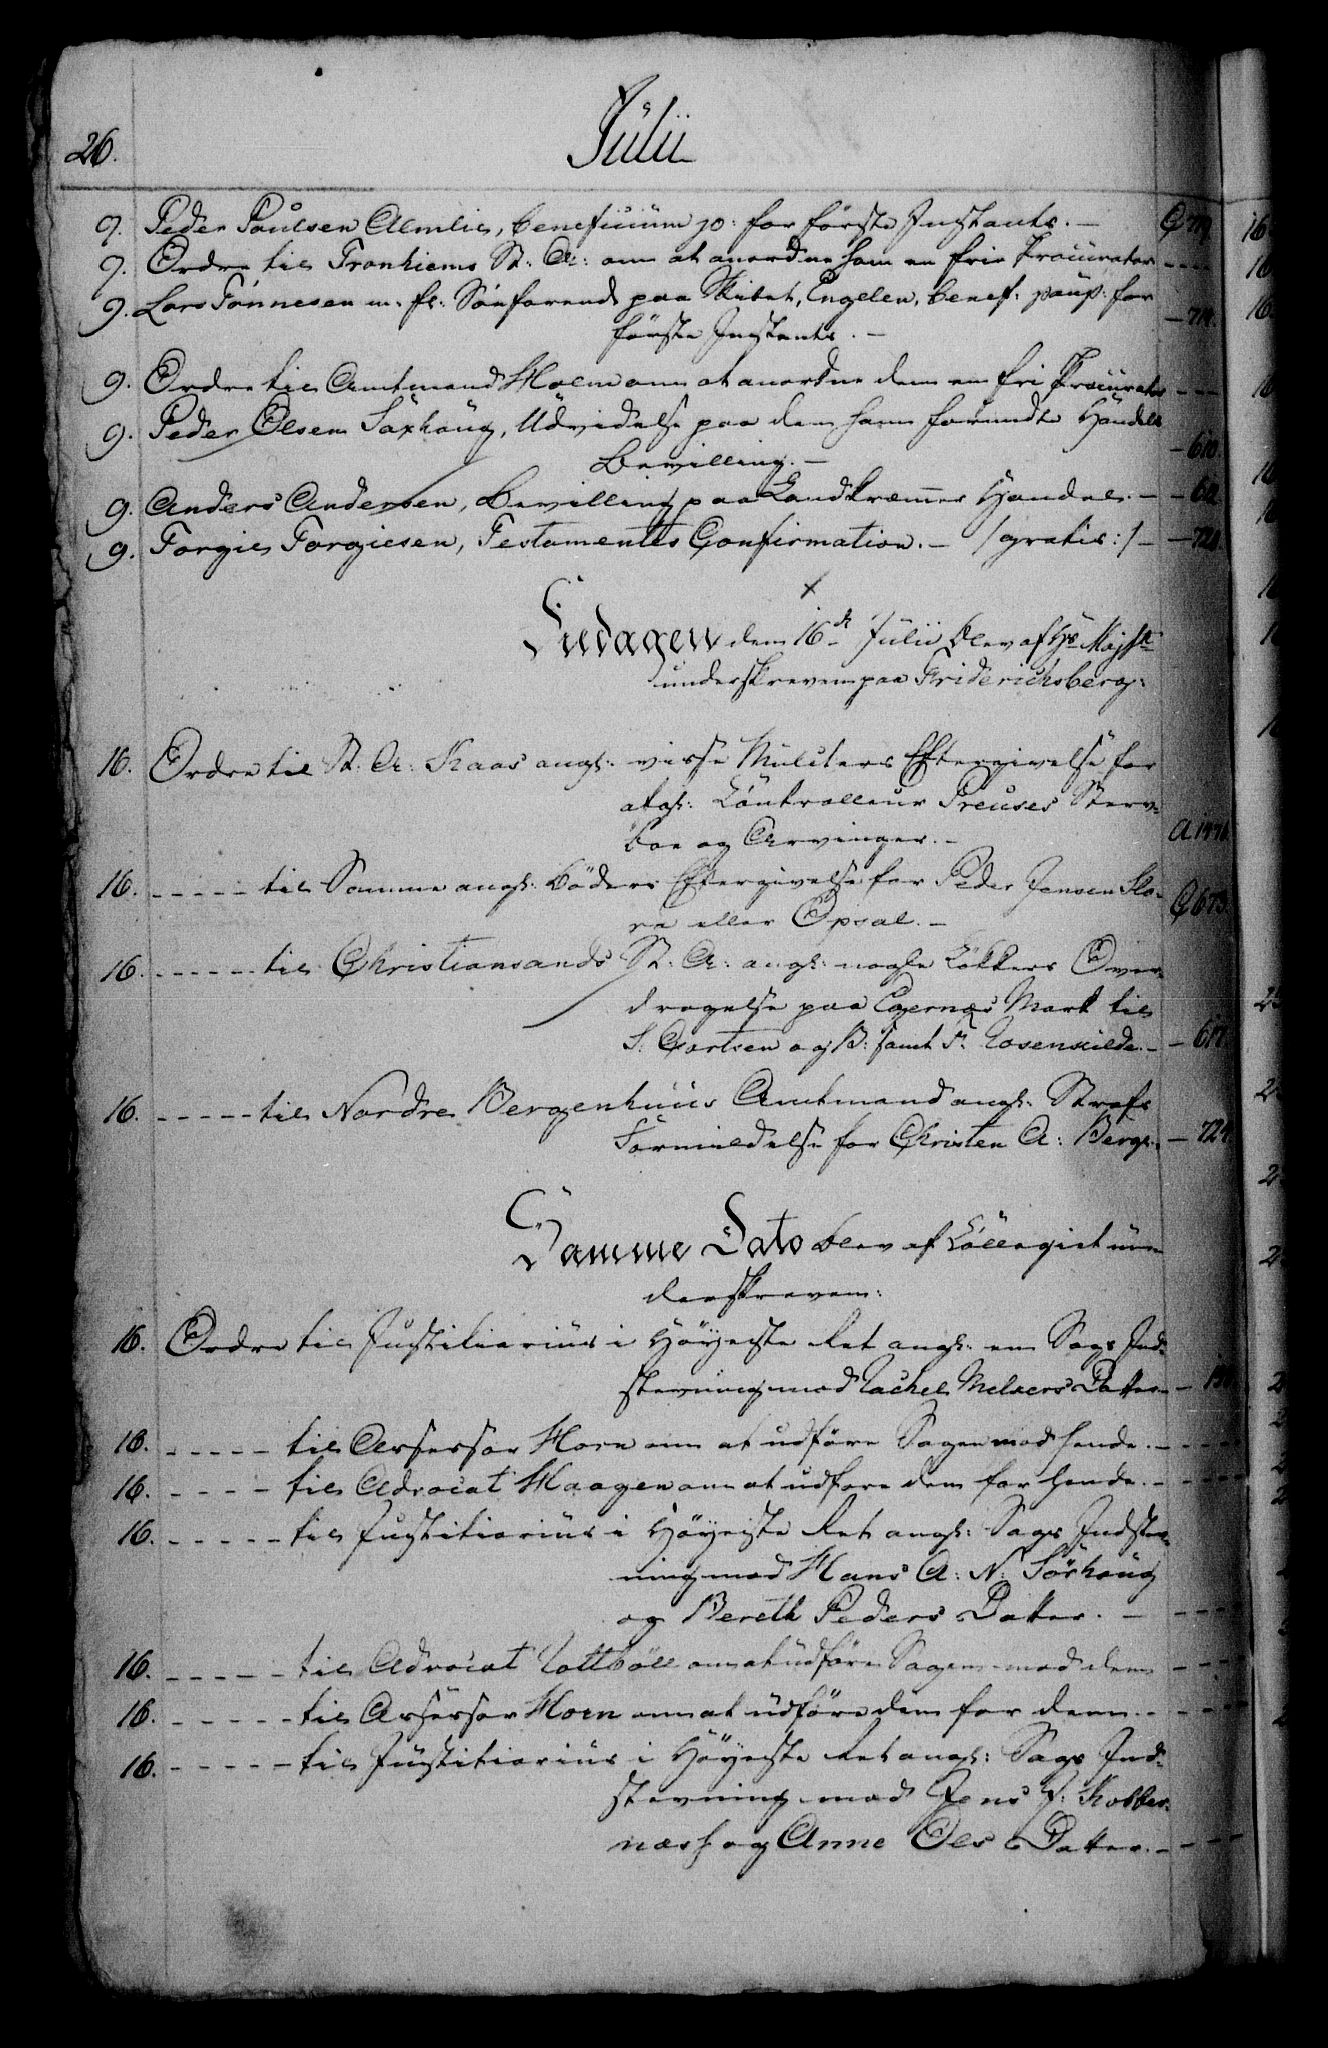 26.
Julii
9. Peder Poulsen Almlie, beneficium p: for förste Instants. -
9. Ordre til Tronhiems St: A: om at anordne ham en frie Procurator ----
9. Lars Tønnesen m. fl: Sönfarende paa Skibet, Engelen, benef: paup: for
förste Instants. - - 714.
9. Ordre til Amtmand Holm om at anordne dem en fri Procurator ---
9. Peder Olsen Saxhaug, Udvidelse paa den ham forundte Handels
Bevilling. - - 610.
9. Anders Andersen, Bevilling paa Landkræmmer Handel. -
9. Torgie Torgiesen, Testamentes Confirmation. - /gratis:/ - - 720.
Fredagen dem 16de Julii blev af Hs Majst
underskreven paa Friderichsberg:
16. Ordre til St: A: Kaas angl: visse Mulcters Eftergivelse for
afgl: Controlleur Preuses Sterv-
boe og Arvinger. -
16. ----- til Samme angl: Böders Eftergivelse for Peder Jensen Slo-
re eller Opsal. - C 673.
16. ------ til Christiansands St: A: angl: nogle Løkkers Over-
dragelse paa Egernæs Mark til
S: Gartsen og B: samt P. Rosenkilde. - - 617.
16. ----- til Nordre Bergenhuus Amtmand angl: Strafs
Formildelse for Christen A: Berge. - 724.
Samme Dato blev af Collegiet un-
derskreven:
16. Ordre til Justitiarius i Höyeste Ret angl: en Sags Ind-
stevning mod Rachel Nielsens Datter -
16. ----- til Assessor Horn om at udföre Sagen mod hende. - ----
16. ---- til Advocat Haagen om at udföre dem for hende. - ----
16. ----- til Justitiarius i Höyeste Ret angl: Sags Indstev-
ning mod Hans A: N: Sörhaug
og Bereth Peders Datter. - ----
16. ----- til Advocat Rottböll om at udföre Sagen mod dem ---
16. ----- til Assessor Horn om at udföre dem for dem. - ----
16. ----- til Justitiarius i Höyeste Ret angl: Sags Ind-
stevning mod Jens J: Kobber-
næss og Anne Ols Datter. - ---